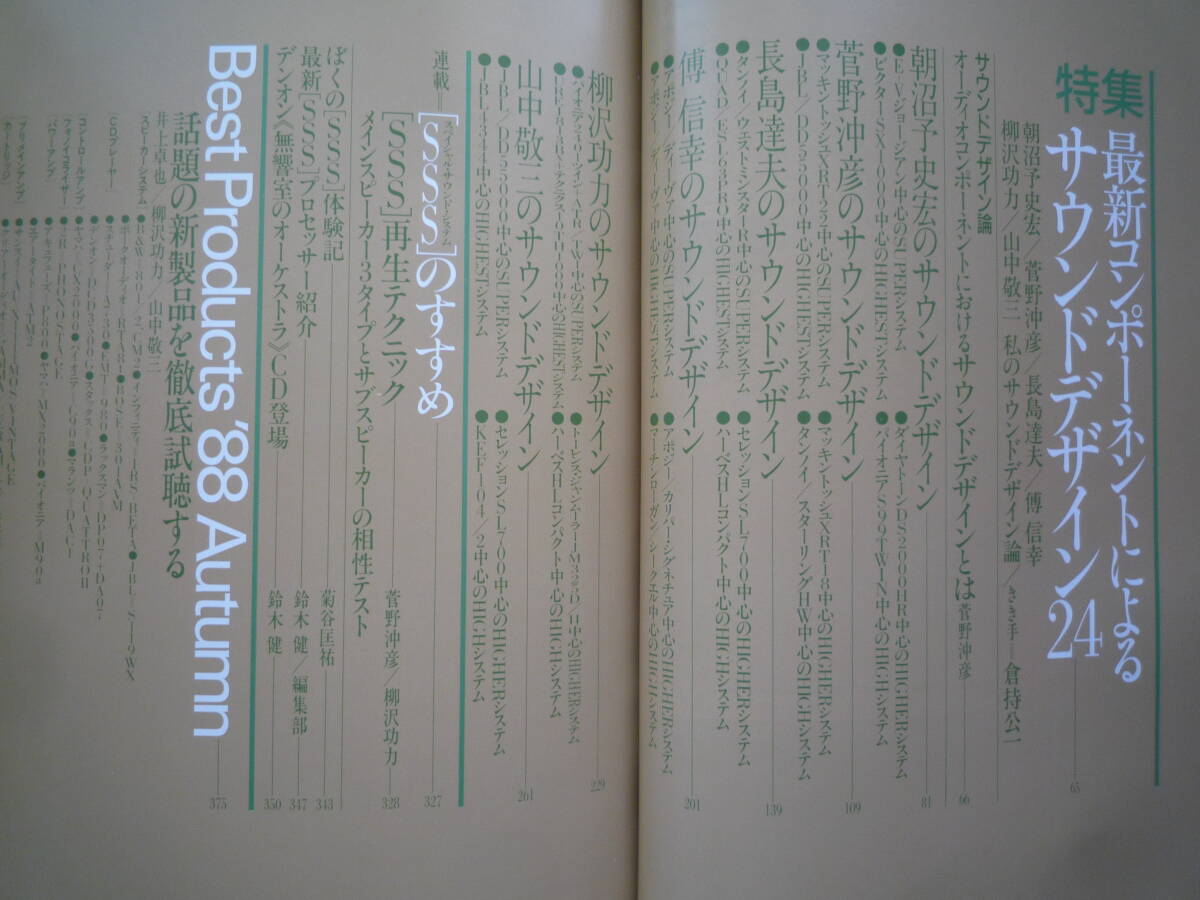 特集
最新コンポーネントによる
サウンドデザイン24
65
朝沼予史宏／菅野沖彦／長島達夫／傅 信幸
柳沢功力／山中敬三 私のサウンドデザイン論／きき手＝倉持公一
サウンドデザイン論
オーディオコンポーネントにおけるサウンドデザインとは 菅野沖彦
66
朝沼予史宏のサウンドデザイン
81
●E-V／ジョージアン中心のSUPERシステム
●ダイヤトーンDS2000HR中心のHIGHERシステム
●ビクターSX1000中心のHIGHESTシステム
●パイオニアS99TWIN中心のHIGHシステム
菅野沖彦のサウンドデザイン
109
●マッキントッシュXRT22中心のSUPERシステム
●マッキントッシュXRT18中心のHIGHERシステム
●JBL／DD55000中心のHIGHESTシステム
●タンノイ／スターリングHW中心のHIGHシステム
長島達夫のサウンドデザイン
139
●タンノイ／ウェストミンスターR中心のSUPERシステム
●セレッションSL700中心のHIGHERシステム
●QUAD／ESL63PRO中心のHIGHESTシステム
●ハーベスHLコンパクト中心のHIGHシステム
傅 信幸のサウンドデザイン
201
●アポジー／ディーヴァ中心のSUPERシステム
●アポジー／カリパー・シグネチュア中心のHIGHERシステム
●アポジー／ディーヴァ中心のHIGHESTシステム
●マーチンローガン／シークエル中心のHIGHシステム
柳沢功力のサウンドデザイン
229
山中敬三のサウンドデザイン
261
●JBL／DD55000中心のSUPERシステム
●セレッションSL700中心のHIGHERシステム
●JBL4344中心のHIGHESTシステム
●KEF104／2中心のHIGHシステム
連載＝[SSS]のすすめ
327
[SSS]再生テクニック
菅野沖彦／柳沢功力
328
メインスピーカー3タイプとサブスピーカーの相性テスト
ぼくの[SSS]体験記
菊谷匡祐
343
最新[SSS]プロセッサー紹介
鈴木 健／編集部
347
デンオン《無響室のオーケストラ》CD登場
鈴木 健
350
Best Products '88 Autumn
375
話題の新製品を徹底試聴する
井上卓也／柳沢功力／山中敬三
スピーカーシステム
CDプレーヤー
コントロールアンプ
フォノイコライザー
パワーアンプ
プリメインアンプ
カートリッジ